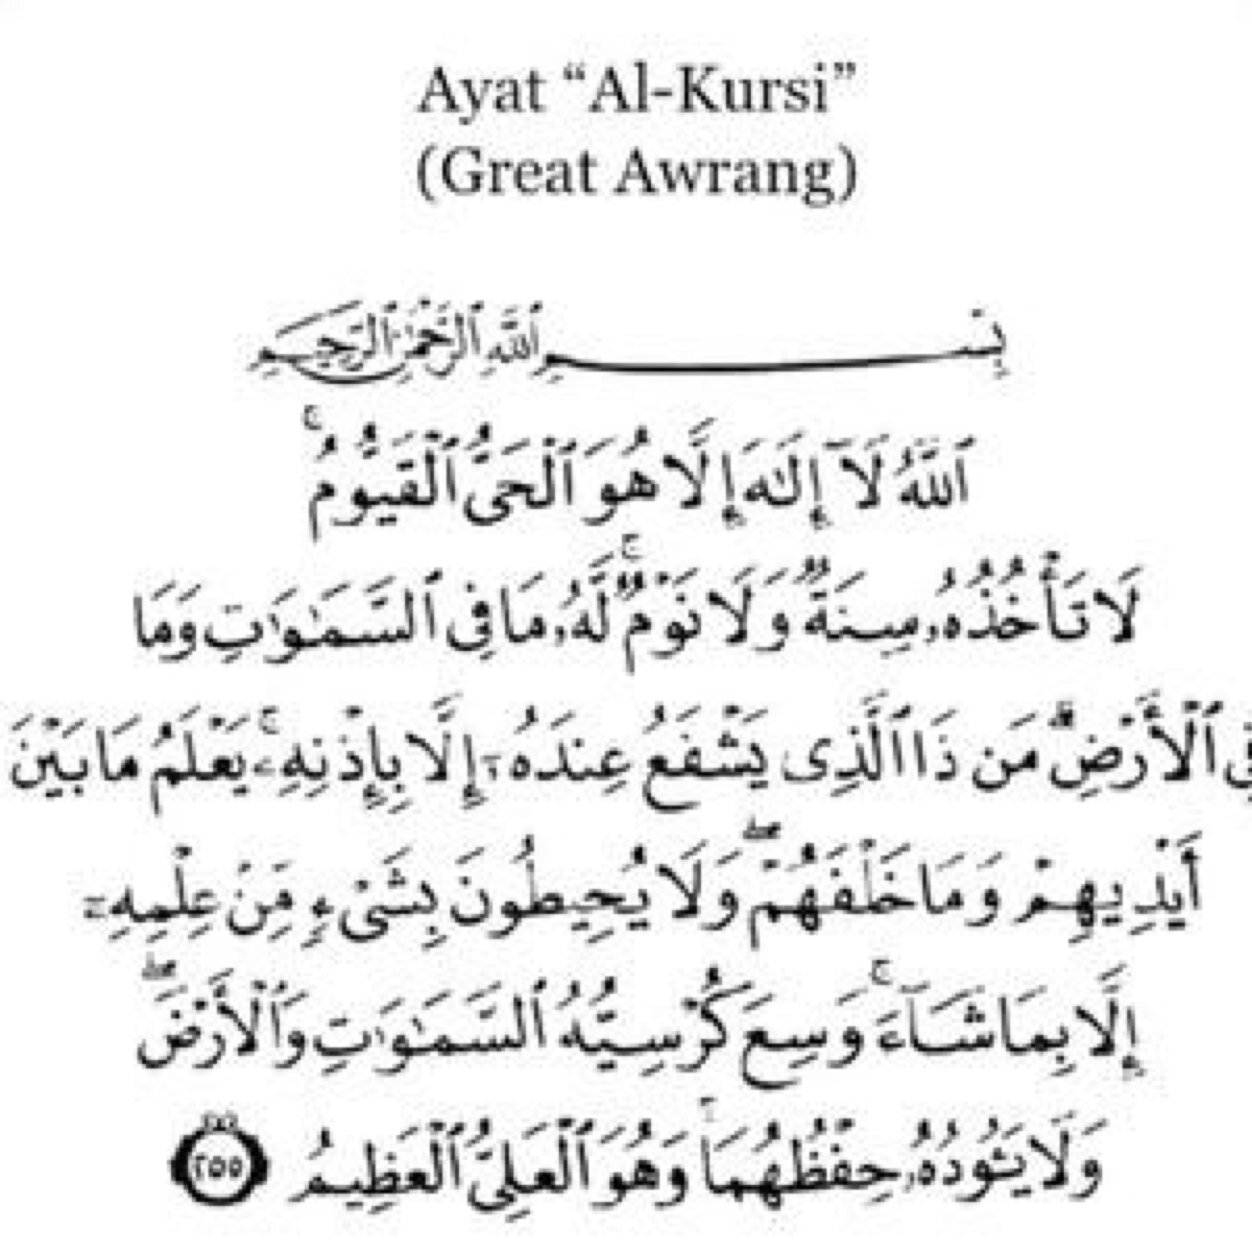 Ayat “Al-Kursi”
(Great Awrang)
بِسْمِ ٱللَّهِ ٱلرَّحْمَٰنِ ٱلرَّحِيمِ
ٱللَّهُ لَآ إِلَٰهَ إِلَّا هُوَ ٱلْحَىُّ ٱلْقَيُّومُ ۚ
لَا تَأْخُذُهُۥ سِنَةٌ وَلَا نَوْمٌ ۚ لَّهُۥ مَا فِى ٱلسَّمَٰوَٰتِ وَمَا
فِى ٱلْأَرْضِ ۗ مَن ذَا ٱلَّذِى يَشْفَعُ عِندَهُۥٓ إِلَّا بِإِذْنِهِۦ ۚ يَعْلَمُ مَا بَيْنَ
أَيْدِيهِمْ وَمَا خَلْفَهُمْ ۖ وَلَا يُحِيطُونَ بِشَىْءٍ مِّنْ عِلْمِهِۦٓ
إِلَّا بِمَا شَآءَ ۚ وَسِعَ كُرْسِيُّهُ ٱلسَّمَٰوَٰتِ وَٱلْأَرْضَ ۖ
وَلَا يَـُٔودُهُۥ حِفْظُهُمَا ۚ وَهُوَ ٱلْعَلِىُّ ٱلْعَظِيمُ ٢٥٥